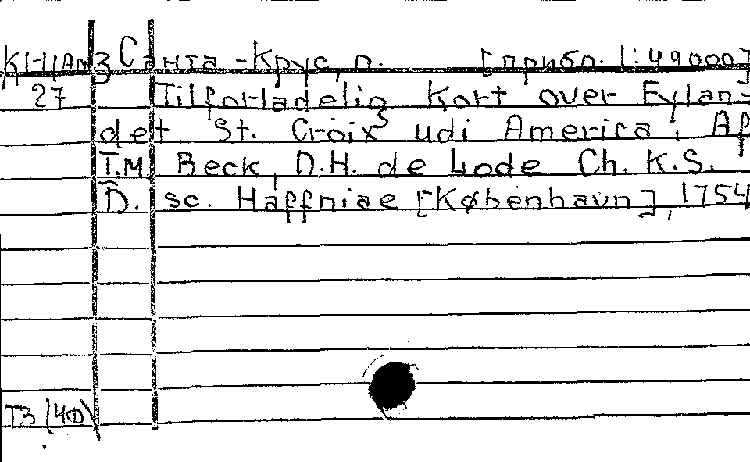 К1-ЦАмЗ Санта-Крус, п. [прибл. 1:49000]
27 Tilforladelig Kort over Eylan-
det St. Croix udi America, Af
T.M. Beck, D.H. de Lode Ch. K.S.
D. sc. Haffniae [København], 1754
ТЗ (4D)